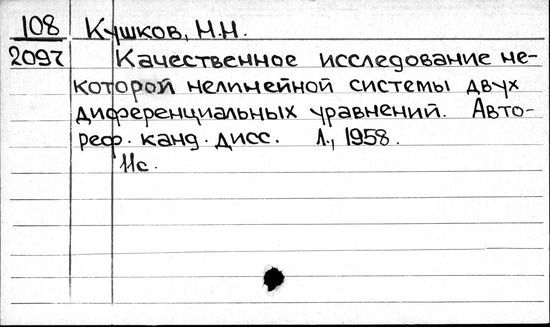 108 Кушков, Н.Н.
2097 Качественное исследование не-
которой нелинейной системы двух
диференциальных уравнений. Авто-
реф. канд. дисс. Л., 1958.
11с.